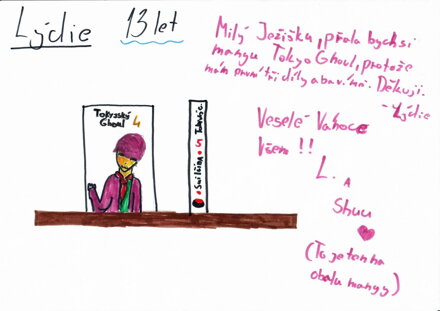 Lýdie 13 let
Milý Ježíšku, přála bych si
mangu Tokyo Ghoul, protože
mám první tři díly a baví mě. Děkuji.
-Lýdie
Tokyjský
Ghoul 4
5
Veselé Vánoce
Všem!!
L.
A
Shuu
(To je ten na
obalu mangy)